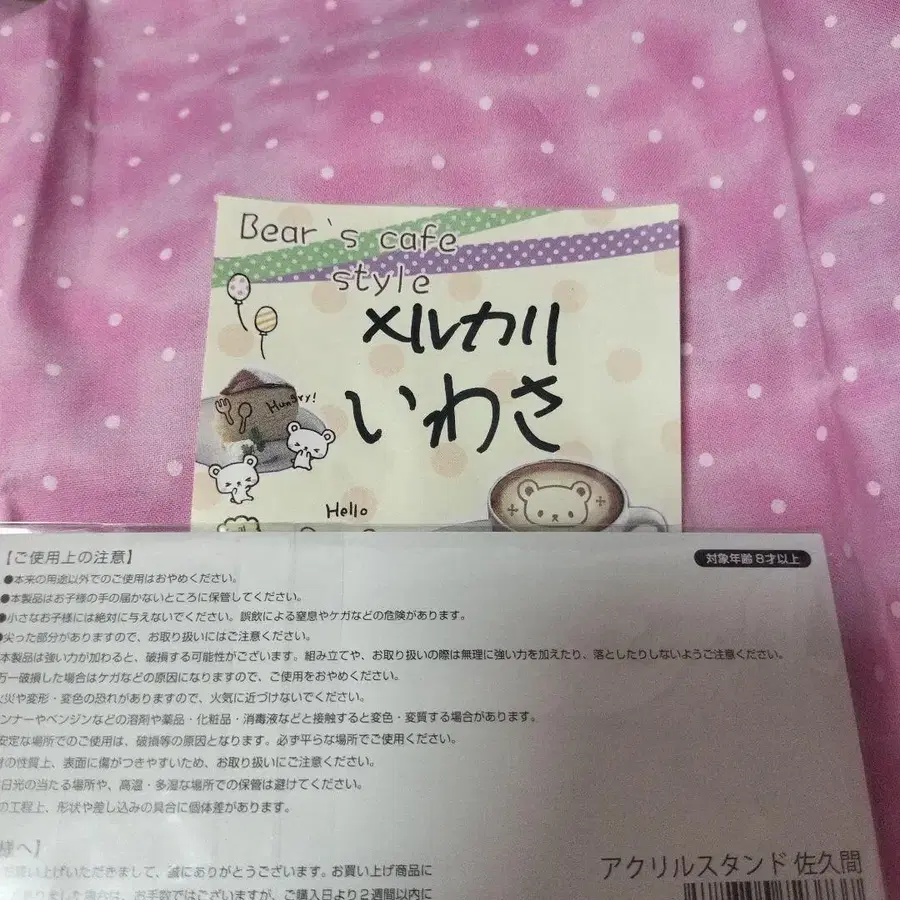 Bear's cafe
style
メルカリ
いわさ
Hungry!
Hello
【ご使用上の注意】
対象年齢8才以上
●本来の用途以外でのご使用はおやめください。
●本製品はお子様の手の届かないところに保管してください。
●小さなお子様には絶対に与えないでください。誤飲による窒息やケガなどの危険があります。
●尖った部分がありますので、お取り扱いにはご注意ください。
本製品は強い力が加わると、破損する可能性がございます。組み立てや、お取り扱いの際は無理に強い力を加えたり、落としたりしないようご注意ください。
万一破損した場合はケガなどの原因になりますので、ご使用をおやめください。
火災や変形・変色の恐れがありますので、火気に近づけないでください。
ンナーやベンジンなどの溶剤や薬品・化粧品・消毒液などと接触すると変色・変質する場合があります。
安定な場所でのご使用は、破損等の原因となります。必ず平らな場所でご使用ください。
の性質上、表面に傷がつきやすいため、お取り扱いにご注意ください。
日光の当たる場所や、高温・多湿な場所での保管は避けてください。
の工程上、形状や差し込みの具合に個体差があります。
様へ】
い上げいただきまして、誠にありがとうございます。お買い上げ商品に
お手数ではございますが、ご購入日より2週間以内に
アクリルスタンド 佐久間